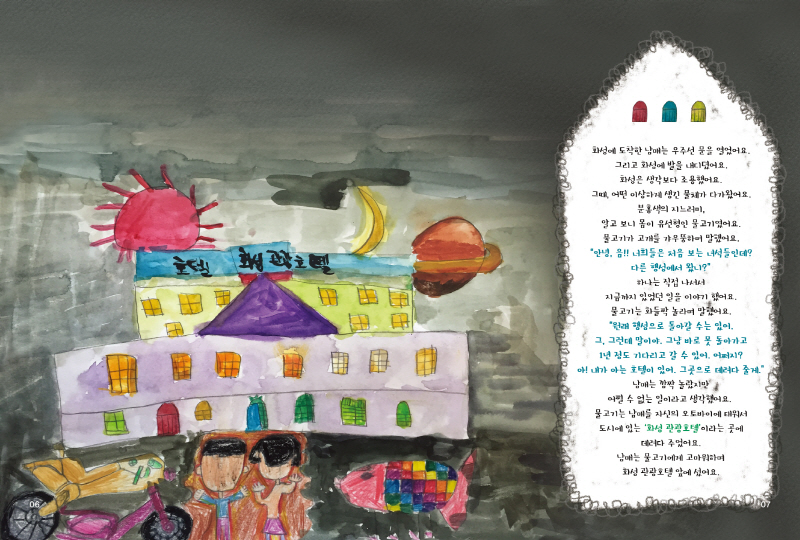 호텔 화성 관광호텔
화성에 도착한 남매는 우주선 문을 열었어요.
그리고 화성에 발을 내디뎠어요.
화성은 생각보다 조용했어요.
그때, 어떤 이상하게 생긴 물체가 다가왔어요.
분홍색의 지느러미,
알고 보니 몸이 유선형인 물고기였어요.
물고기가 고개를 갸우뚱하며 말했어요.
"안녕, 음!! 너희들은 처음 보는 녀석들인데?
다른 행성에서 왔니?"
하나는 직접 나서서
지금까지 있었던 일을 이야기 했어요.
물고기는 화들짝 놀라며 말했어요.
"원래 행성으로 돌아갈 수는 있어.
그, 그런데 말이야. 그냥 바로 못 돌아가고
1년 정도 기다리고 갈 수 있어. 어쩌지?
아! 내가 아는 호텔이 있어. 그곳으로 데려다 줄게."
남매는 깜짝 놀랐지만
어쩔 수 없는 일이라고 생각했어요.
물고기는 남매를 자신의 오토바이에 태워서
도시에 있는 '화성 관광호텔'이라는 곳에
데려다 주었어요.
남매는 물고기에게 고마워하며
화성 관광호텔 앞에 섰어요.
06
07